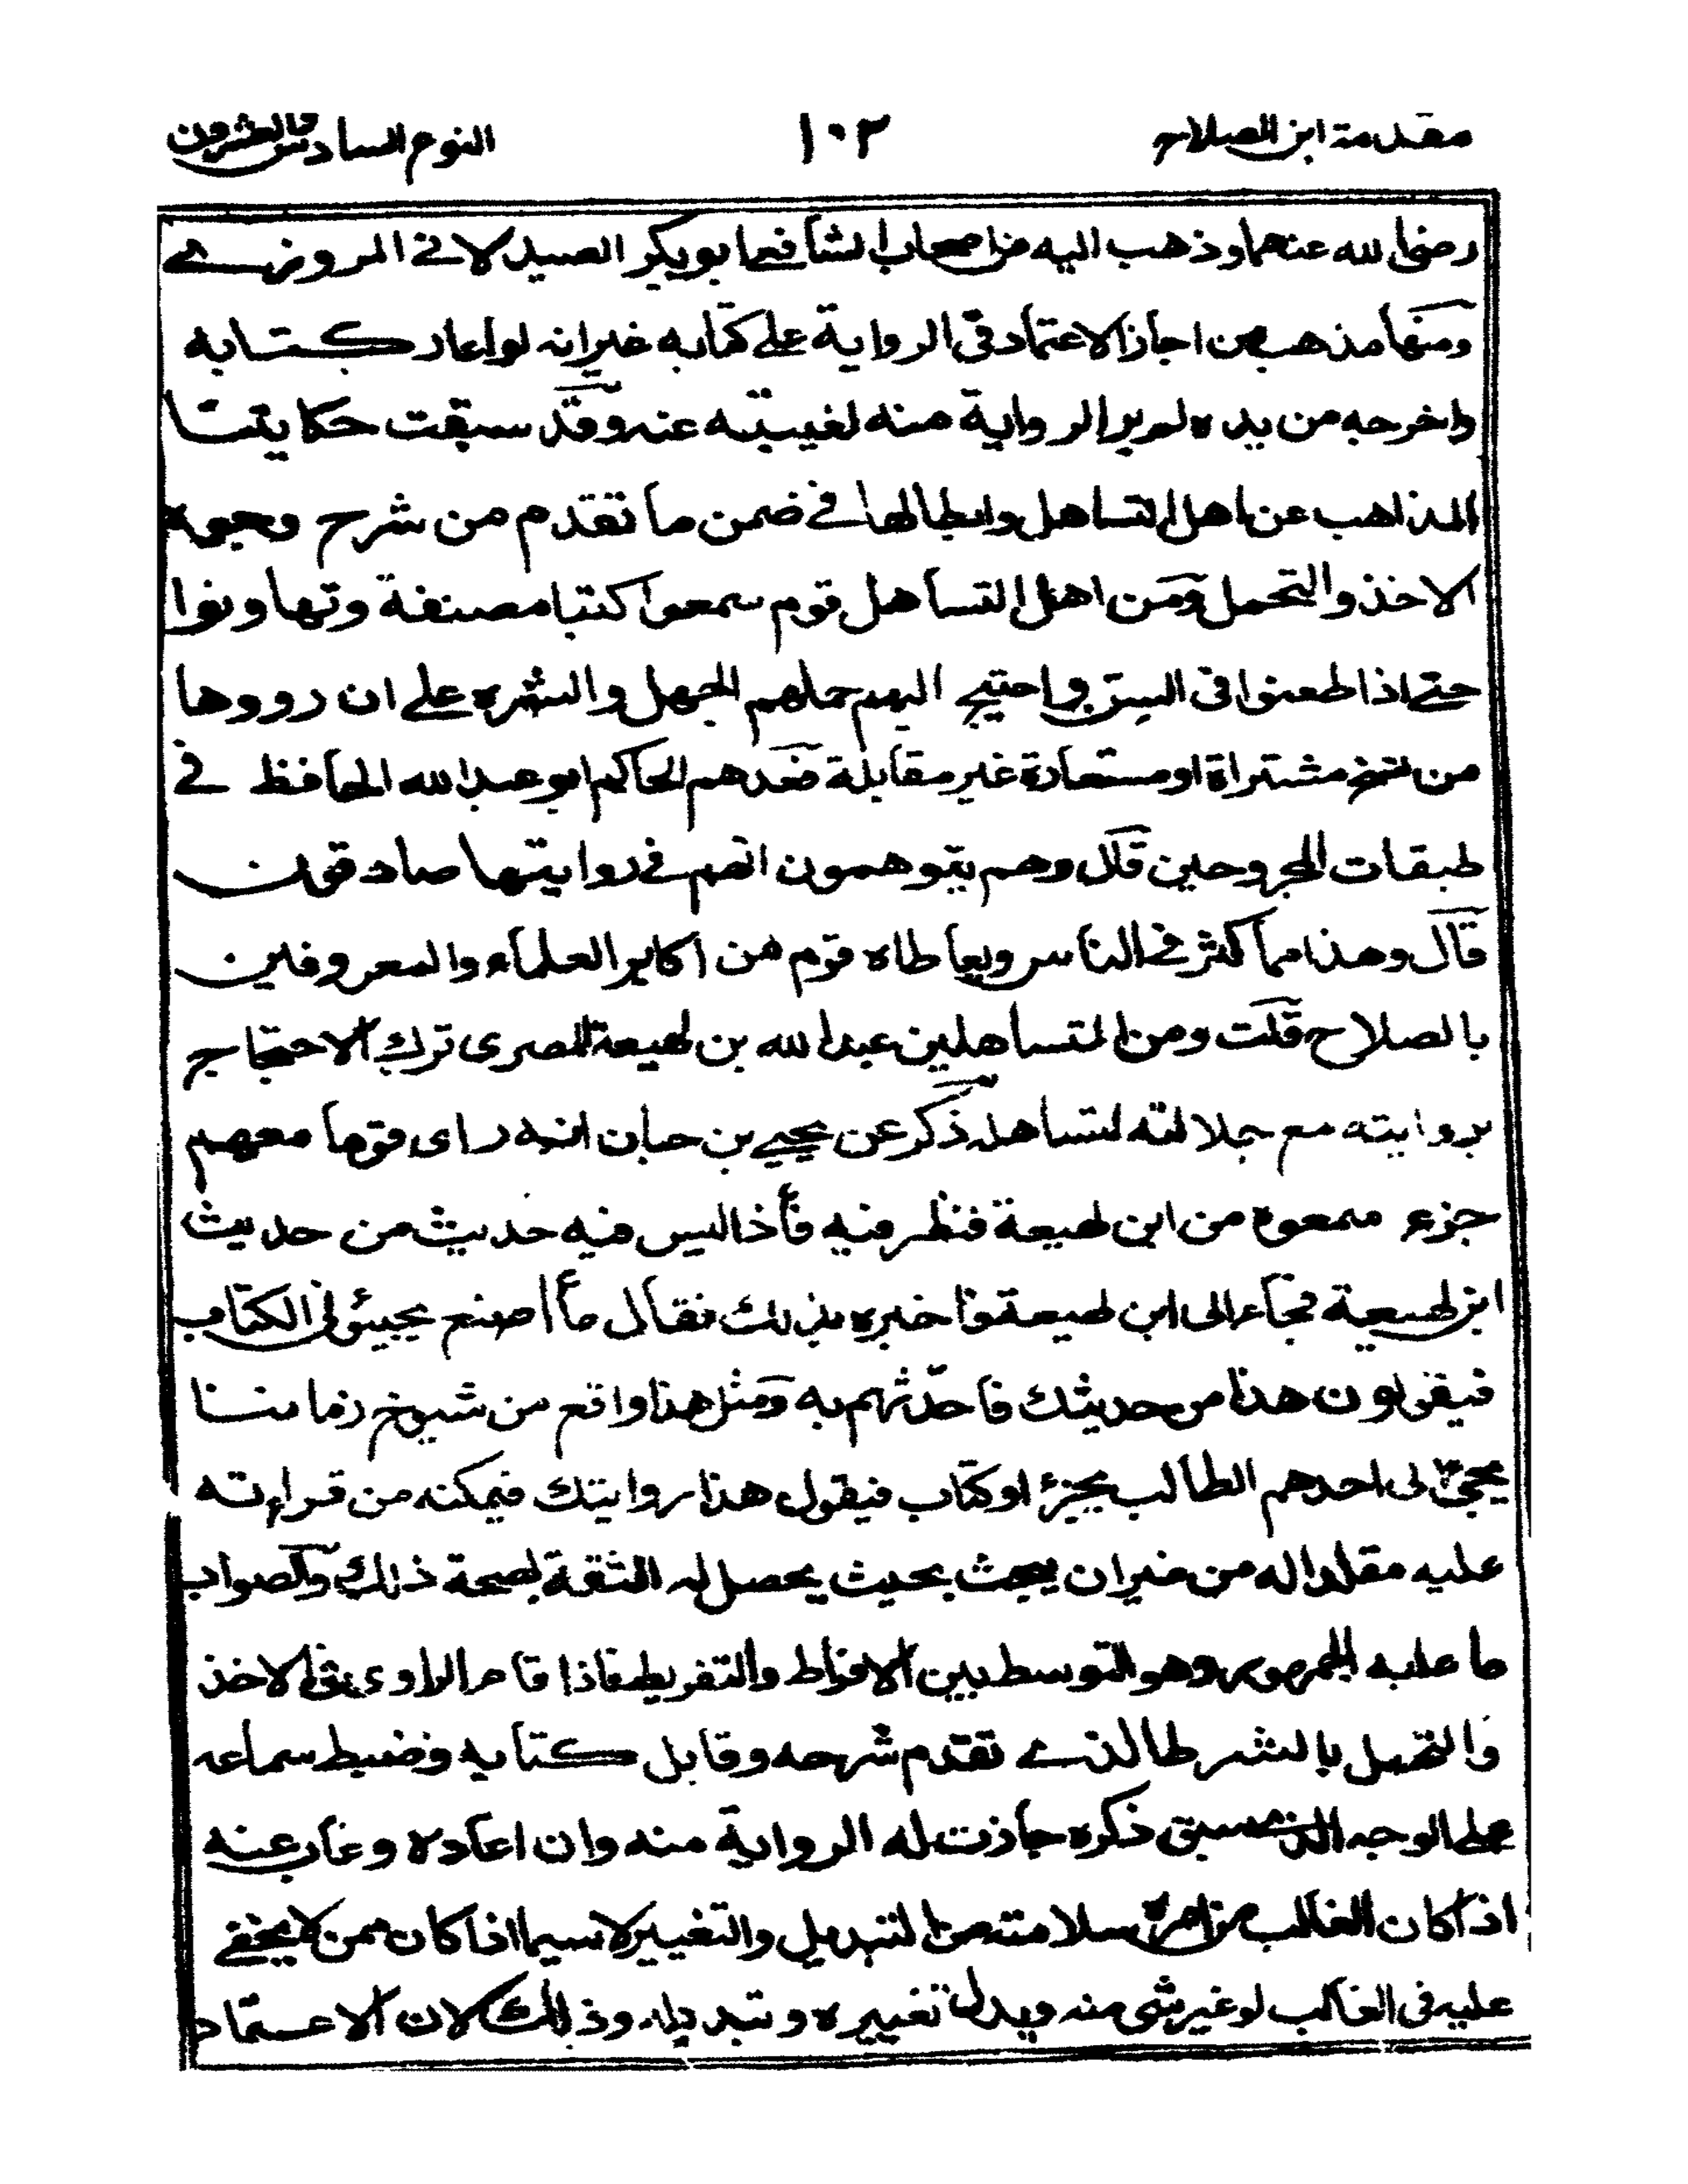 مقدمة ابن الصلاح
١٠٣
النوع السادس والعشرون
رضي الله عنهما وذهب اليه من اصحاب الشافعي ابو بكر الصيدلاني المروزي
ومنها مذهب من اجاز الاعتماد في الرواية على كتابه غير انه لو اعار كتابه
واخرجه من يده لم ير الرواية منه لغيبته عنه وقد سبقت حكايتنا
المذاهب عن اهل التساهل وابطالها في ضمن ما تقدم من شرح وجوه
الاخذ والتحمل ومن اهل التساهل قوم سمعوا كتبا مصنفة وتهاونوا
حتى اذا طعنوا في السن واحتيج اليهم حملهم الجهل والشره على ان رووها
من نسخ مشتراة او مستعارة غير مقابلة فعدهم الحاكم ابو عبد الله الحافظ في
طبقات المجروحين قال وهم يتوهمون انهم في روايتها صادقون
قال وهذا مما كثر في الناس وتعاطاه قوم من اكابر العلماء والمعروفين
بالصلاح قلت ومن المتساهلين عبد الله بن لهيعة المصرى ترك الاحتجاج
بروايته مع جلالته لتساهله ذكر عن يحيى بن حسان انه راى قوما معهم
جزء سمعوه من ابن لهيعة فنظر فيه فاذا ليس فيه حديث من حديث
ابن لهيعة فجاء الى ابن لهيعة فاخبره بذلك فقال ما أصنع يجيئوني الكتاب
فيقولون هذا من حديثك فاحدّثهم به ومثل هذا واقع من شيوخ زماننا
يجئ الى احدهم الطالب بجزء او كتاب فيقول هذا روايتك فيمكنه من قراءته
عليه مقلدا له من غير ان يبحث بحيث يحصل له الثقة بصحة ذلك والصواب
ما عليه الجمهور وهو التوسط بين الافراط والتفريط فاذا قام الراوى في الاخذ
والتحمل بالشرط الذي تقدم شرحه وقابل كتابه وضبط سماعه
على الوجه الذي سبق ذكره جازت له الرواية منه وان اعاده وغاب عنه
اذا كان الغالب من امره سلامته من التبديل والتغيير لا سيما اذا كان ممن لا يخفى
عليه في الغالب لو غير شى منه وبدل تغييره وتبديله وذلك لان الاعتماد